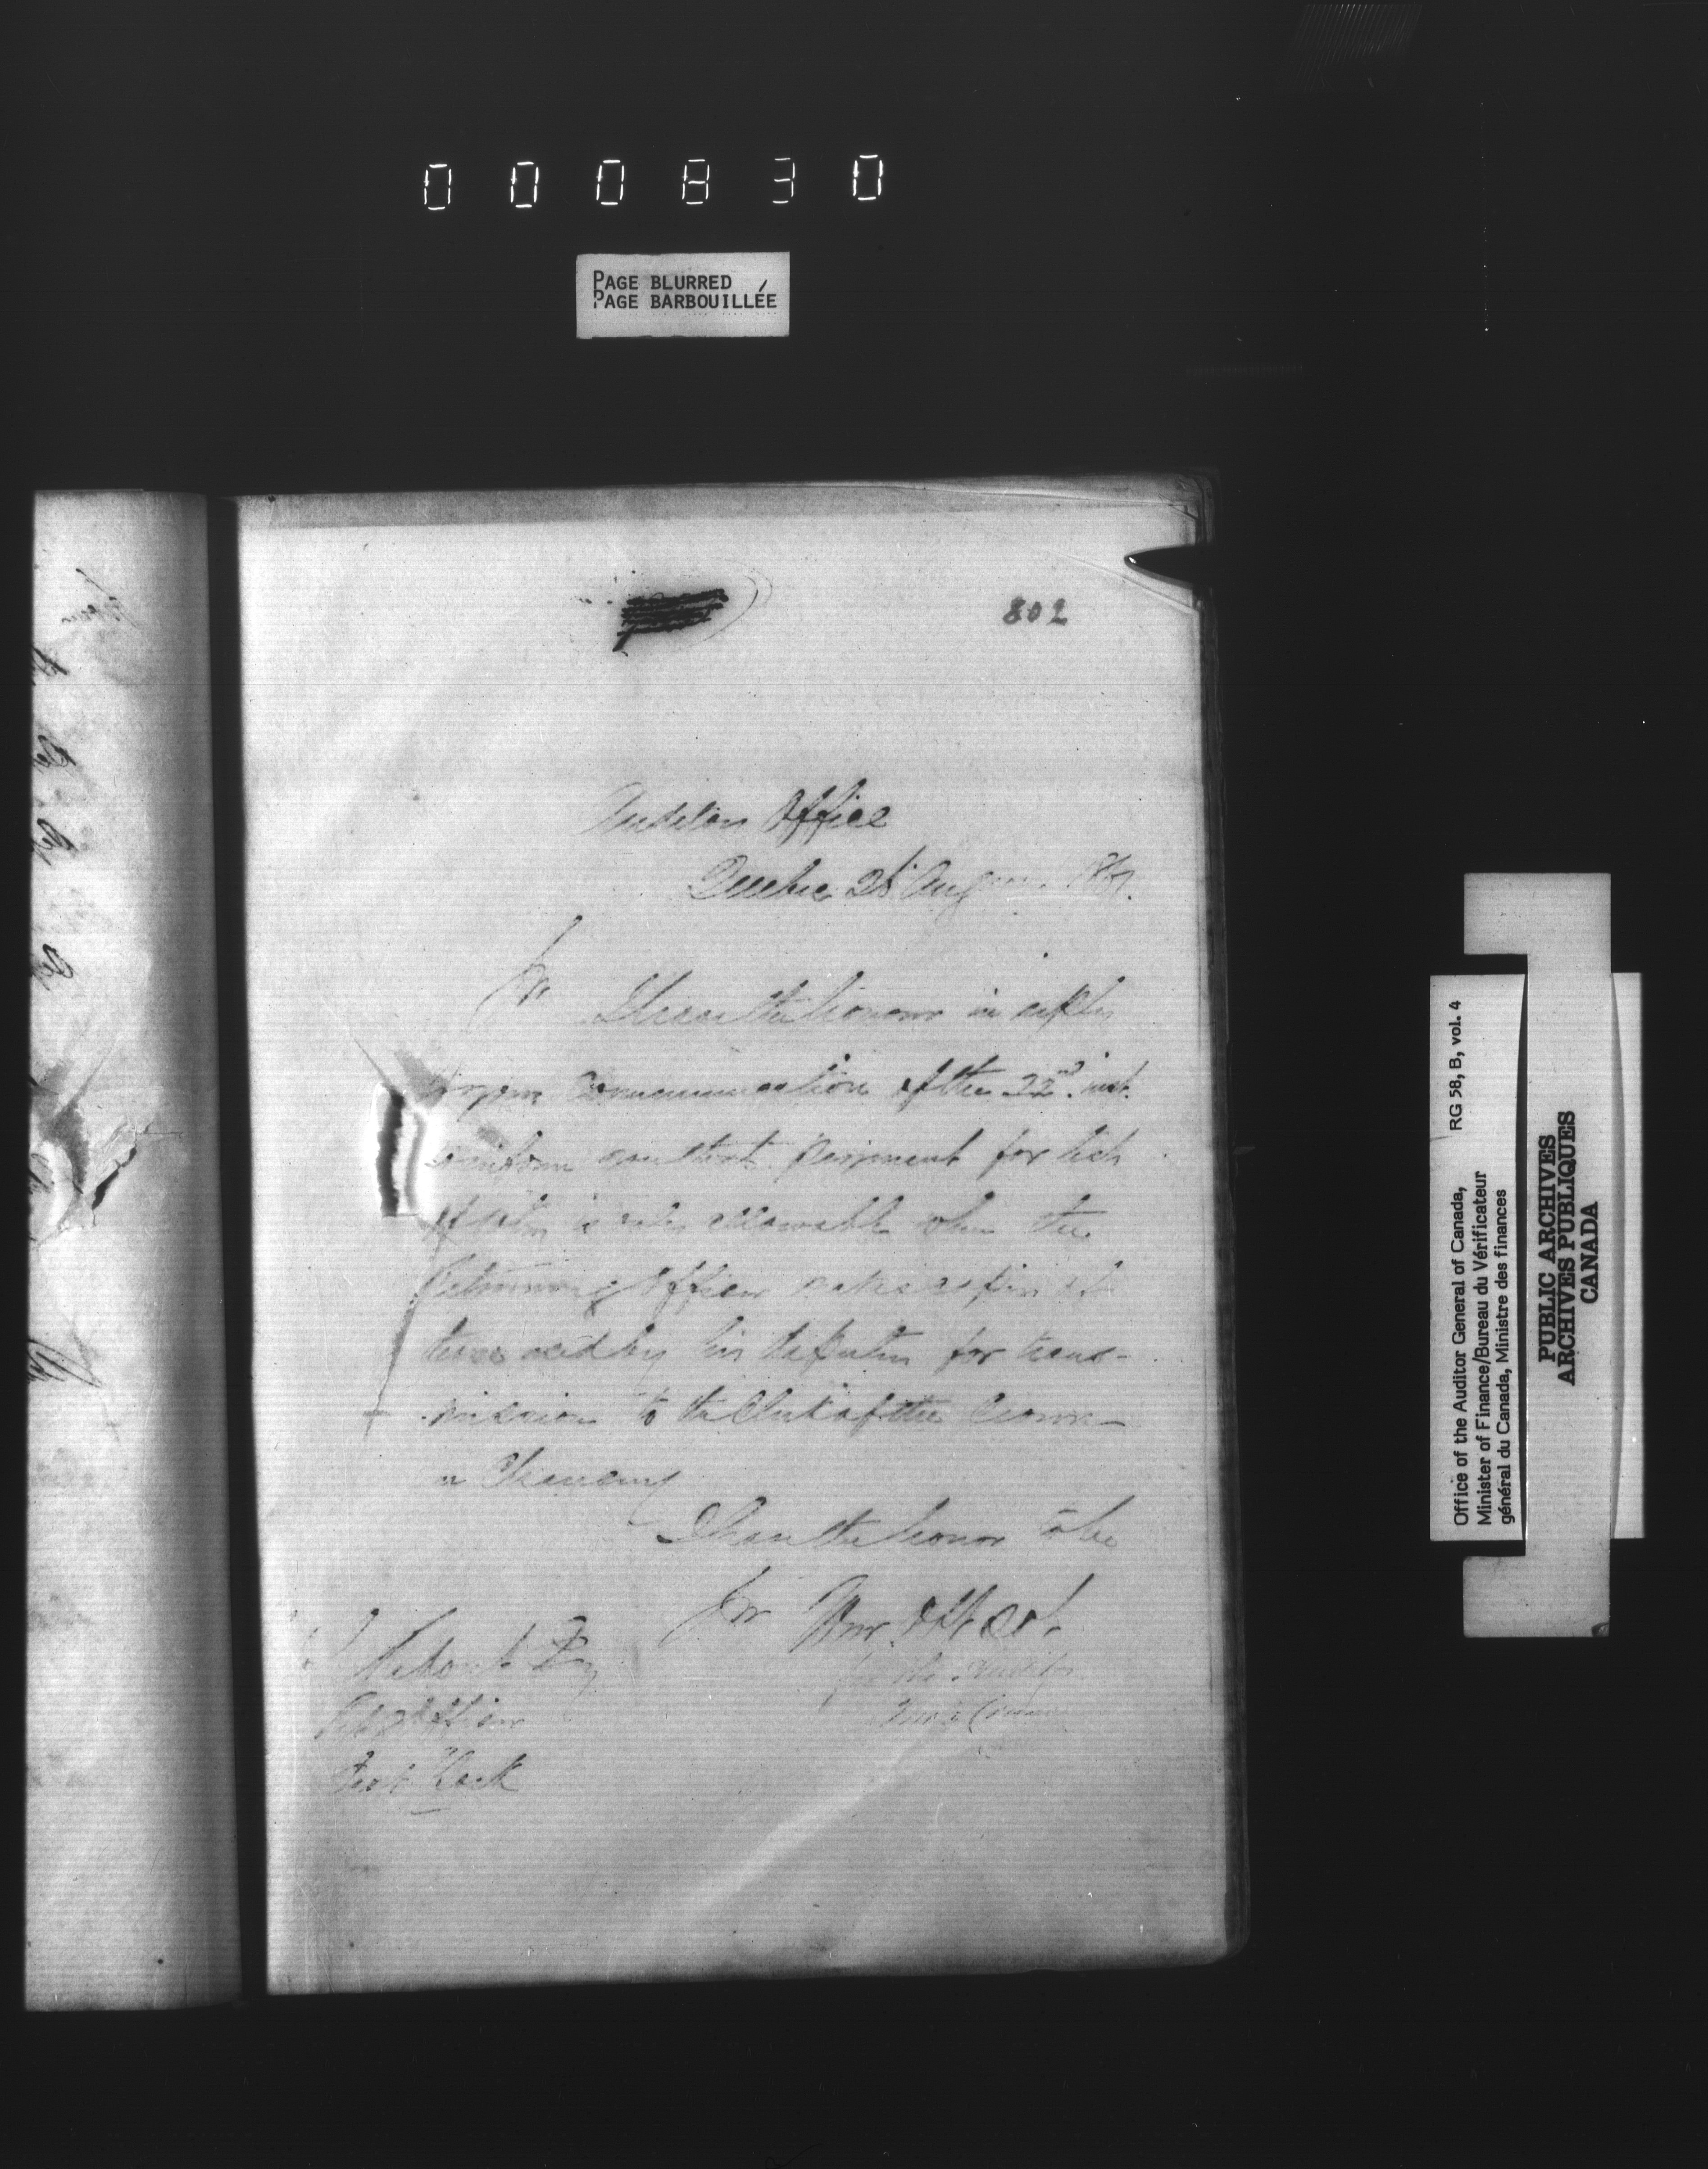 000830
PAGE BLURRED
PAGE BARBOUILLÉE
802
Audit Office
Quebec 26 Augu. 1861.
Sir
I have the honour in reply
to your communication of the 22nd. inst.
to inform you that payment for lists
of is only allowable when the
Returning Officer makes copies of
those used by his deputies for trans-
mission to the Clerk of the Crown
in Chancery
I have the honor to be
Sir Your Ob St
for the Auditor
Esq
Retg Officer
RG 58, B, vol. 4
Office of the Auditor General of Canada,
Minister of Finance/Bureau du Vérificateur
général du Canada, Ministre des finances
PUBLIC ARCHIVES
ARCHIVES PUBLIQUES
CANADA